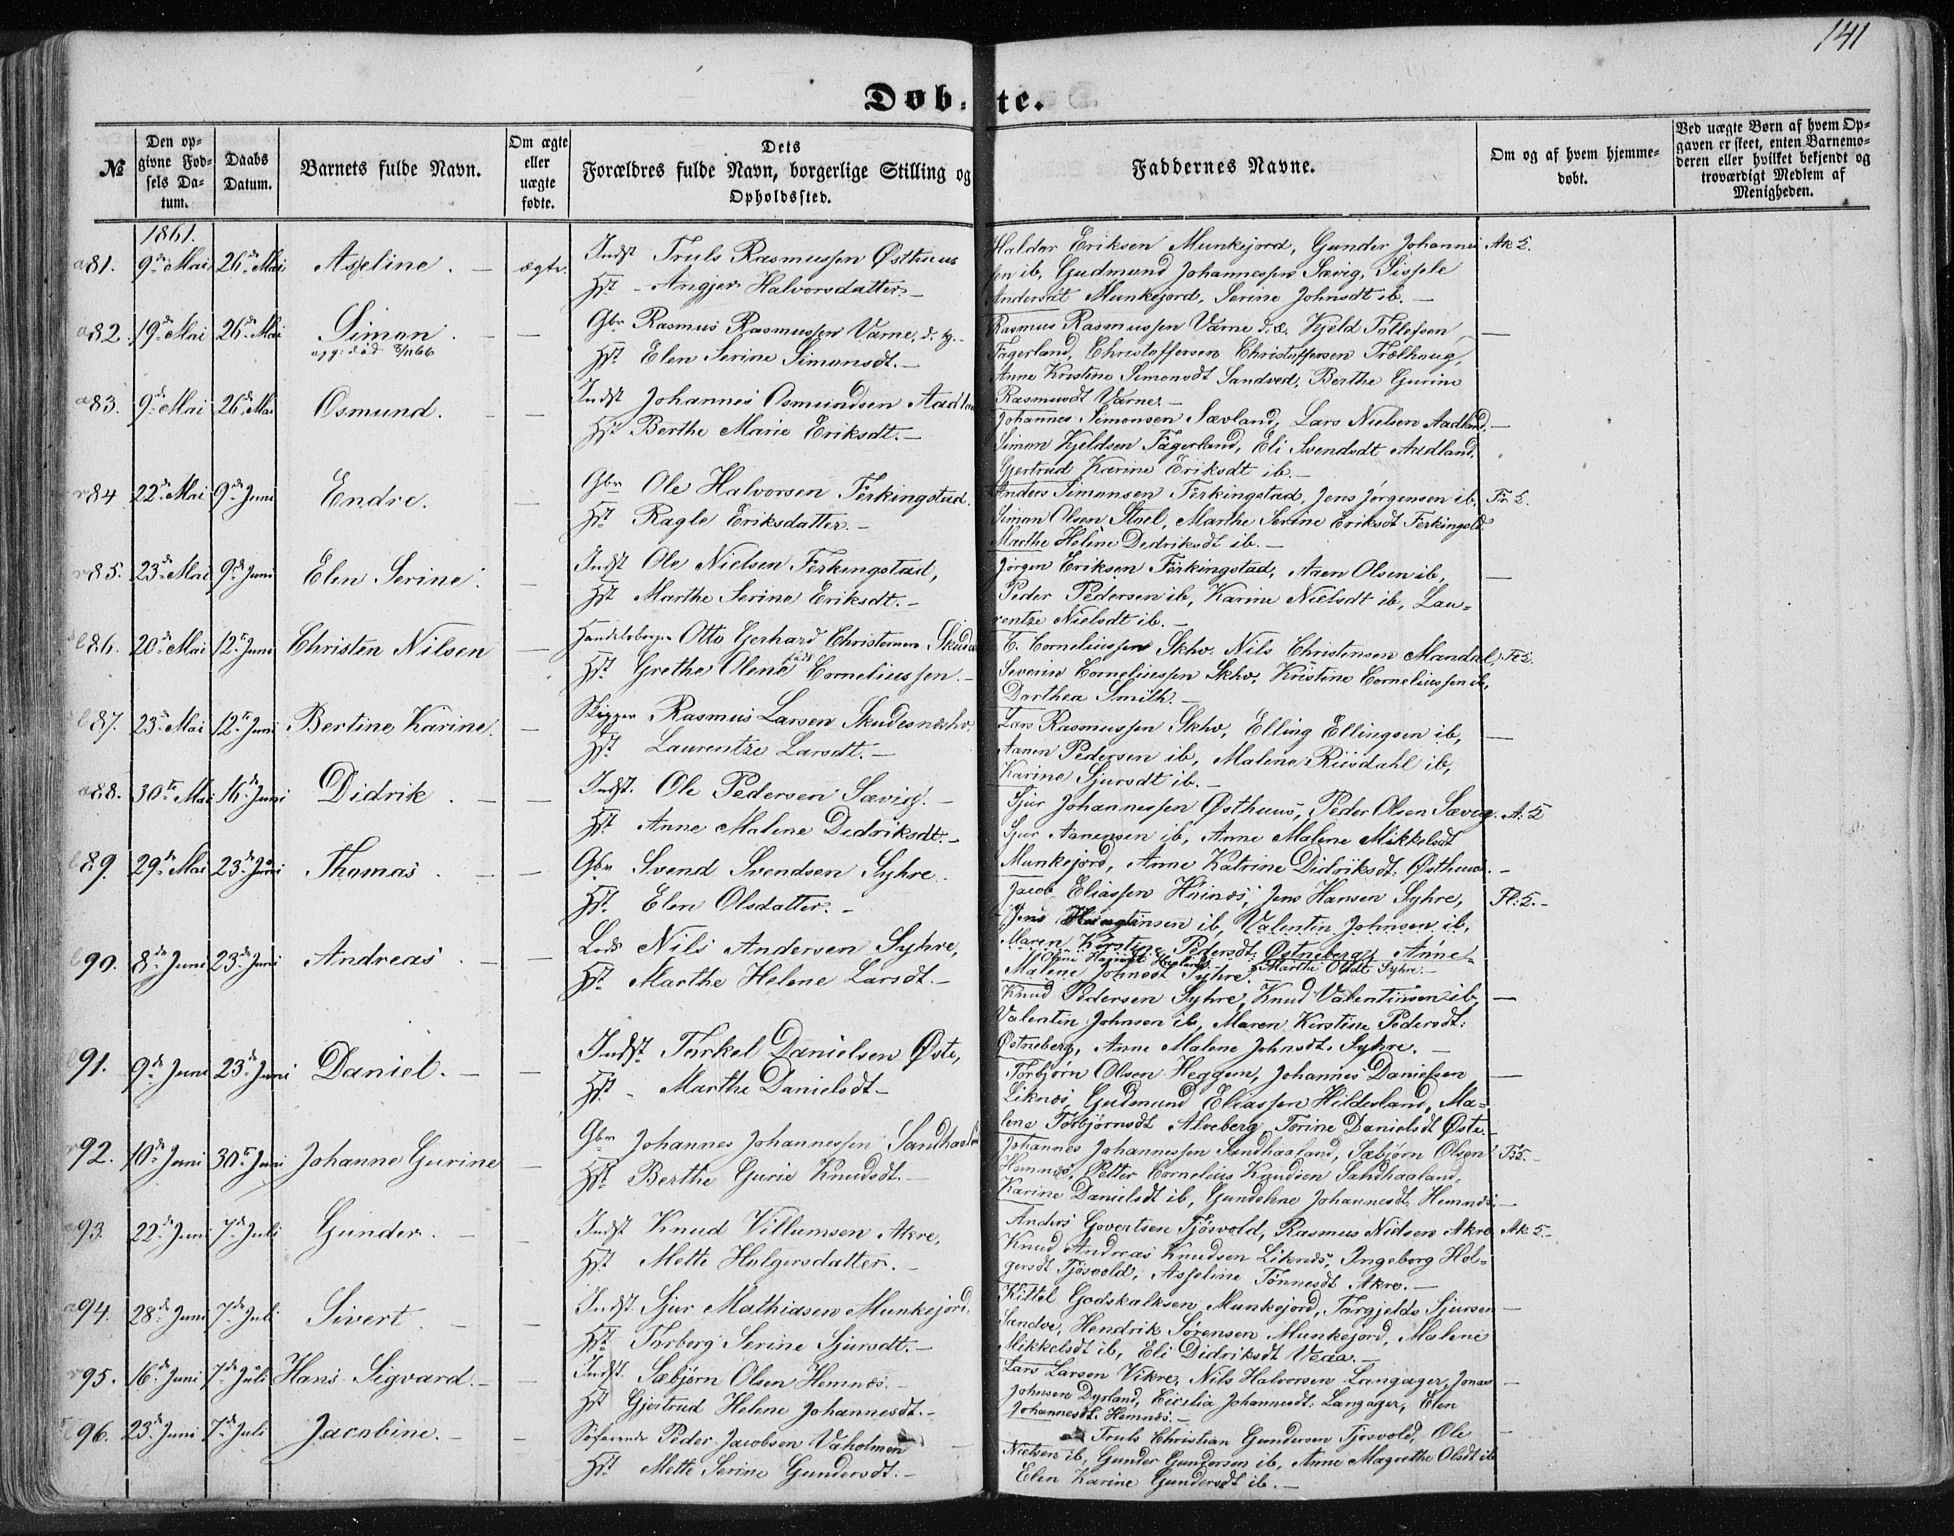 141
Døb- te.
№
Den op-
givne Fød-
sels Da-
tum.
Daabs
Datum.
Barnets fulde Navn.
Om ægte
eller
uægte
fødte.
Dets
Forældres fulde Navn, borgerlige Stilling og
Opholdssted.
Faddernes Navne.
Om og af hvem hjemme-
døbt.
Ved uægte Børn af hvem Op-
gaven er skeet, enten Barnemo-
deren eller hvilket bekjendt og
troværdigt Medlem af
Menigheden.
1861.
a81. 9de Mai 26de Mai Asseline. — ægte. Indst Truls Rasmussen Østhuus
Hst - Angjer Halvorsdatter —
Haldor Eriksen Munkejord, Gunder Johannes- Ak 5.
sen ib, Gudmund Johannessen Sævig, Sissele
Andersdt Munkejord, Serine Johnsdt ib. —
a82. 19de Mai 26de Mai Simon. — Gbr Rasmus Rasmussen Varne, d. y. —
opg: død 8/11 66
Hst Elen Serine Simonsdt. —
Rasmus Rasmussen Varne d.æ. Kjeld Tollefsen —
Fagerland, Christoffersen Christoffersen Trælhaug,
Anne Kristine Simonsdt Sandved, Berthe Gurine
Rasmusdt Varne. —
a83. 9de Mai 26de Mai Osmund. — Indst Johannes Osmundsen Aadland
Hst Berthe Marie Eriksdt. —
Johannes Simonsen Sævland, Lars Nielsen Aadland, —
Simon Kjeldsen Fagerland, Eli Svendsdt Aadland,
Gjertrud Karine Eriksdt ib. —
r84 22de Mai 9de Juni Endre. — Gbr Ole Halvorsen Ferkingstad.
Hst. Ragle Eriksdatter. —
Anders Simonsen Ferkingstad, Jens Jørgensen ib, Fr 5.
Simon Olsen Stoel, Marthe Serine Eriksdt Ferkingstd
Marthe Helene Dedriksdt ib. —
r85. 23de Mai 9de Juni Elen Serine. — Indst Ole Nielsen Ferkingstad,
Hst Marthe Serine Eriksdt. —
Jørgen Eriksen Ferkingstad, Aaen Olsen ib, —
Peder Pedersen ib, Karine Nielsdt ib, Lau-
rentze Nielsdt ib. —
b86. 20de Mai 12te Juni Christen Nilsen — Handelsborger Otto Gerhard Christensen Skudes
Hst Grethe Olene født Corneliussen. —
Corneliussen Skhv. Nils Christensen Mandal, Fr 5.
Severin Corneliussen Skhv, Kristine Corneliussen ib,
Dorthea Smith. —
b87. 23de Mai 12te Juni Bertine Karine. — Skipper Rasmus Larsen Skudesneshv.
Hst Laurentze Larsdt. —
Lars Rasmussen Skhv, Elling Ellingsen ib, —
Aanen Pedersen ib, Malene Riisdahl ib,
Karine Sjursdt ib. —
a88. 30te Mai 16de Juni Didrik. — Indst. Ole Pedersen Sævig. —
Hst. Anne Malene Dedriksdt. —
Sjur Johannessen Østhuus, Peder Olsen Sævig. A: 5
Sjur Aanensen ib, Anne Malene Mikkelsdt
Munkejord, Anne Katrine Didriksdt. Østhuus. —
b89. 29de Mai 23de Juni Thomas. — Gbr Svend Svendsen Syhre.
Hst. Elen Olsdatter. —
Jacob Eliassen Hiines, Jens Hansen Syhre, Fl: 5. —
Jens ib, Valentin Johnsen ib,
Maren Kerstine Pedersdt, Østneberg, Anne
Malene Johnsdt Syhre. Marthe Olsdt Syhre. —
b90. 8de Juni 23de Juni Andreas. — Lods Nils Andersen Syhre,
Hst. Marthe Helene Larsdt. —
Knud Pedersen Syhre, Knud Valentinsen ib, —
Valentin Johnsen ib, Maren Kerstine Pedersdt.
Østneberg, Anne Malene Johnsdt. Syhre. —
91. 9de Juni 23de Juni Daniel. — Indst Torkel Danielsen Øste,
Hst. - Marthe Danielsdt —
Torbjørn Olsen Heggem, Johannes Danielsen —
Liknes, Gudmund Eliassen Hildesland, Ma-
lene Torbjørnsdt Alveberg, Torine Danielsdt Øste. —
r92. 10de Juni 30te Juni Johanne Gurine — Gbr Johannes Johannessen Sandhaaland
Hst. Berthe Gurie Knudsdt. —
Johannes Johannessen Sandhaaland, Sæbjørn Olsen Fr 5. —
Hemnes, Petter Cornelius Knudsen Sandhaaland,
Karine Danielsdt ib, Gundelene Johannesdt Hemnes, —
a93. 22de Juni 7de Juli Gunder. — Indst Knud Villumsen Akre,
Hst Mette Holgersdatter. —
Anders Govertsen Tjøsvold, Rasmus Nielsen Akre Ak 5. —
Knud Andreas Knudsen Liknes, Ingeborg Hol-
gersdt Tjøsvold, Asseline Tønnesdt Akre. —
a94. 28de Juni 7de Juli Sivert. — Indst. Sjur Mathiasen Munkejord,
Hst. Torberg Serine Sjursdt. —
Kittel Godskalksen Munkejord, Torgjelds Sjursen —
Sandve, Hendrik Sørensen Munkejord, Malene
Mikkelsdt ib, Eli Didriksdt Veaa. —
r95. 16de Juni 7de Juli Hans Sigvard. — Indst. Sæbjørn Olsen Hemnes. —
Hst Gjertrud Helene Johannesdt. —
Lars Larsen Vikre, Nils Halvorsen Langager, Jonas
Johnsen Dyrland, Cicelia Johannesdt. Langager, Elen
Johannesdt. Hemnes. —
96. 23de Juni 7de Juli Jacobine. — Søfarende Peder Jacobsen Vaholmen —
Hst. Mette Serine Gundersdt. —
Truls Christian Gundersen Tjøsvold, Ole —
Nielsen ib, Gunder Gundersen ib, Anne Magrethe Olsdt ib
Elen Karine Gundersdt ib. —